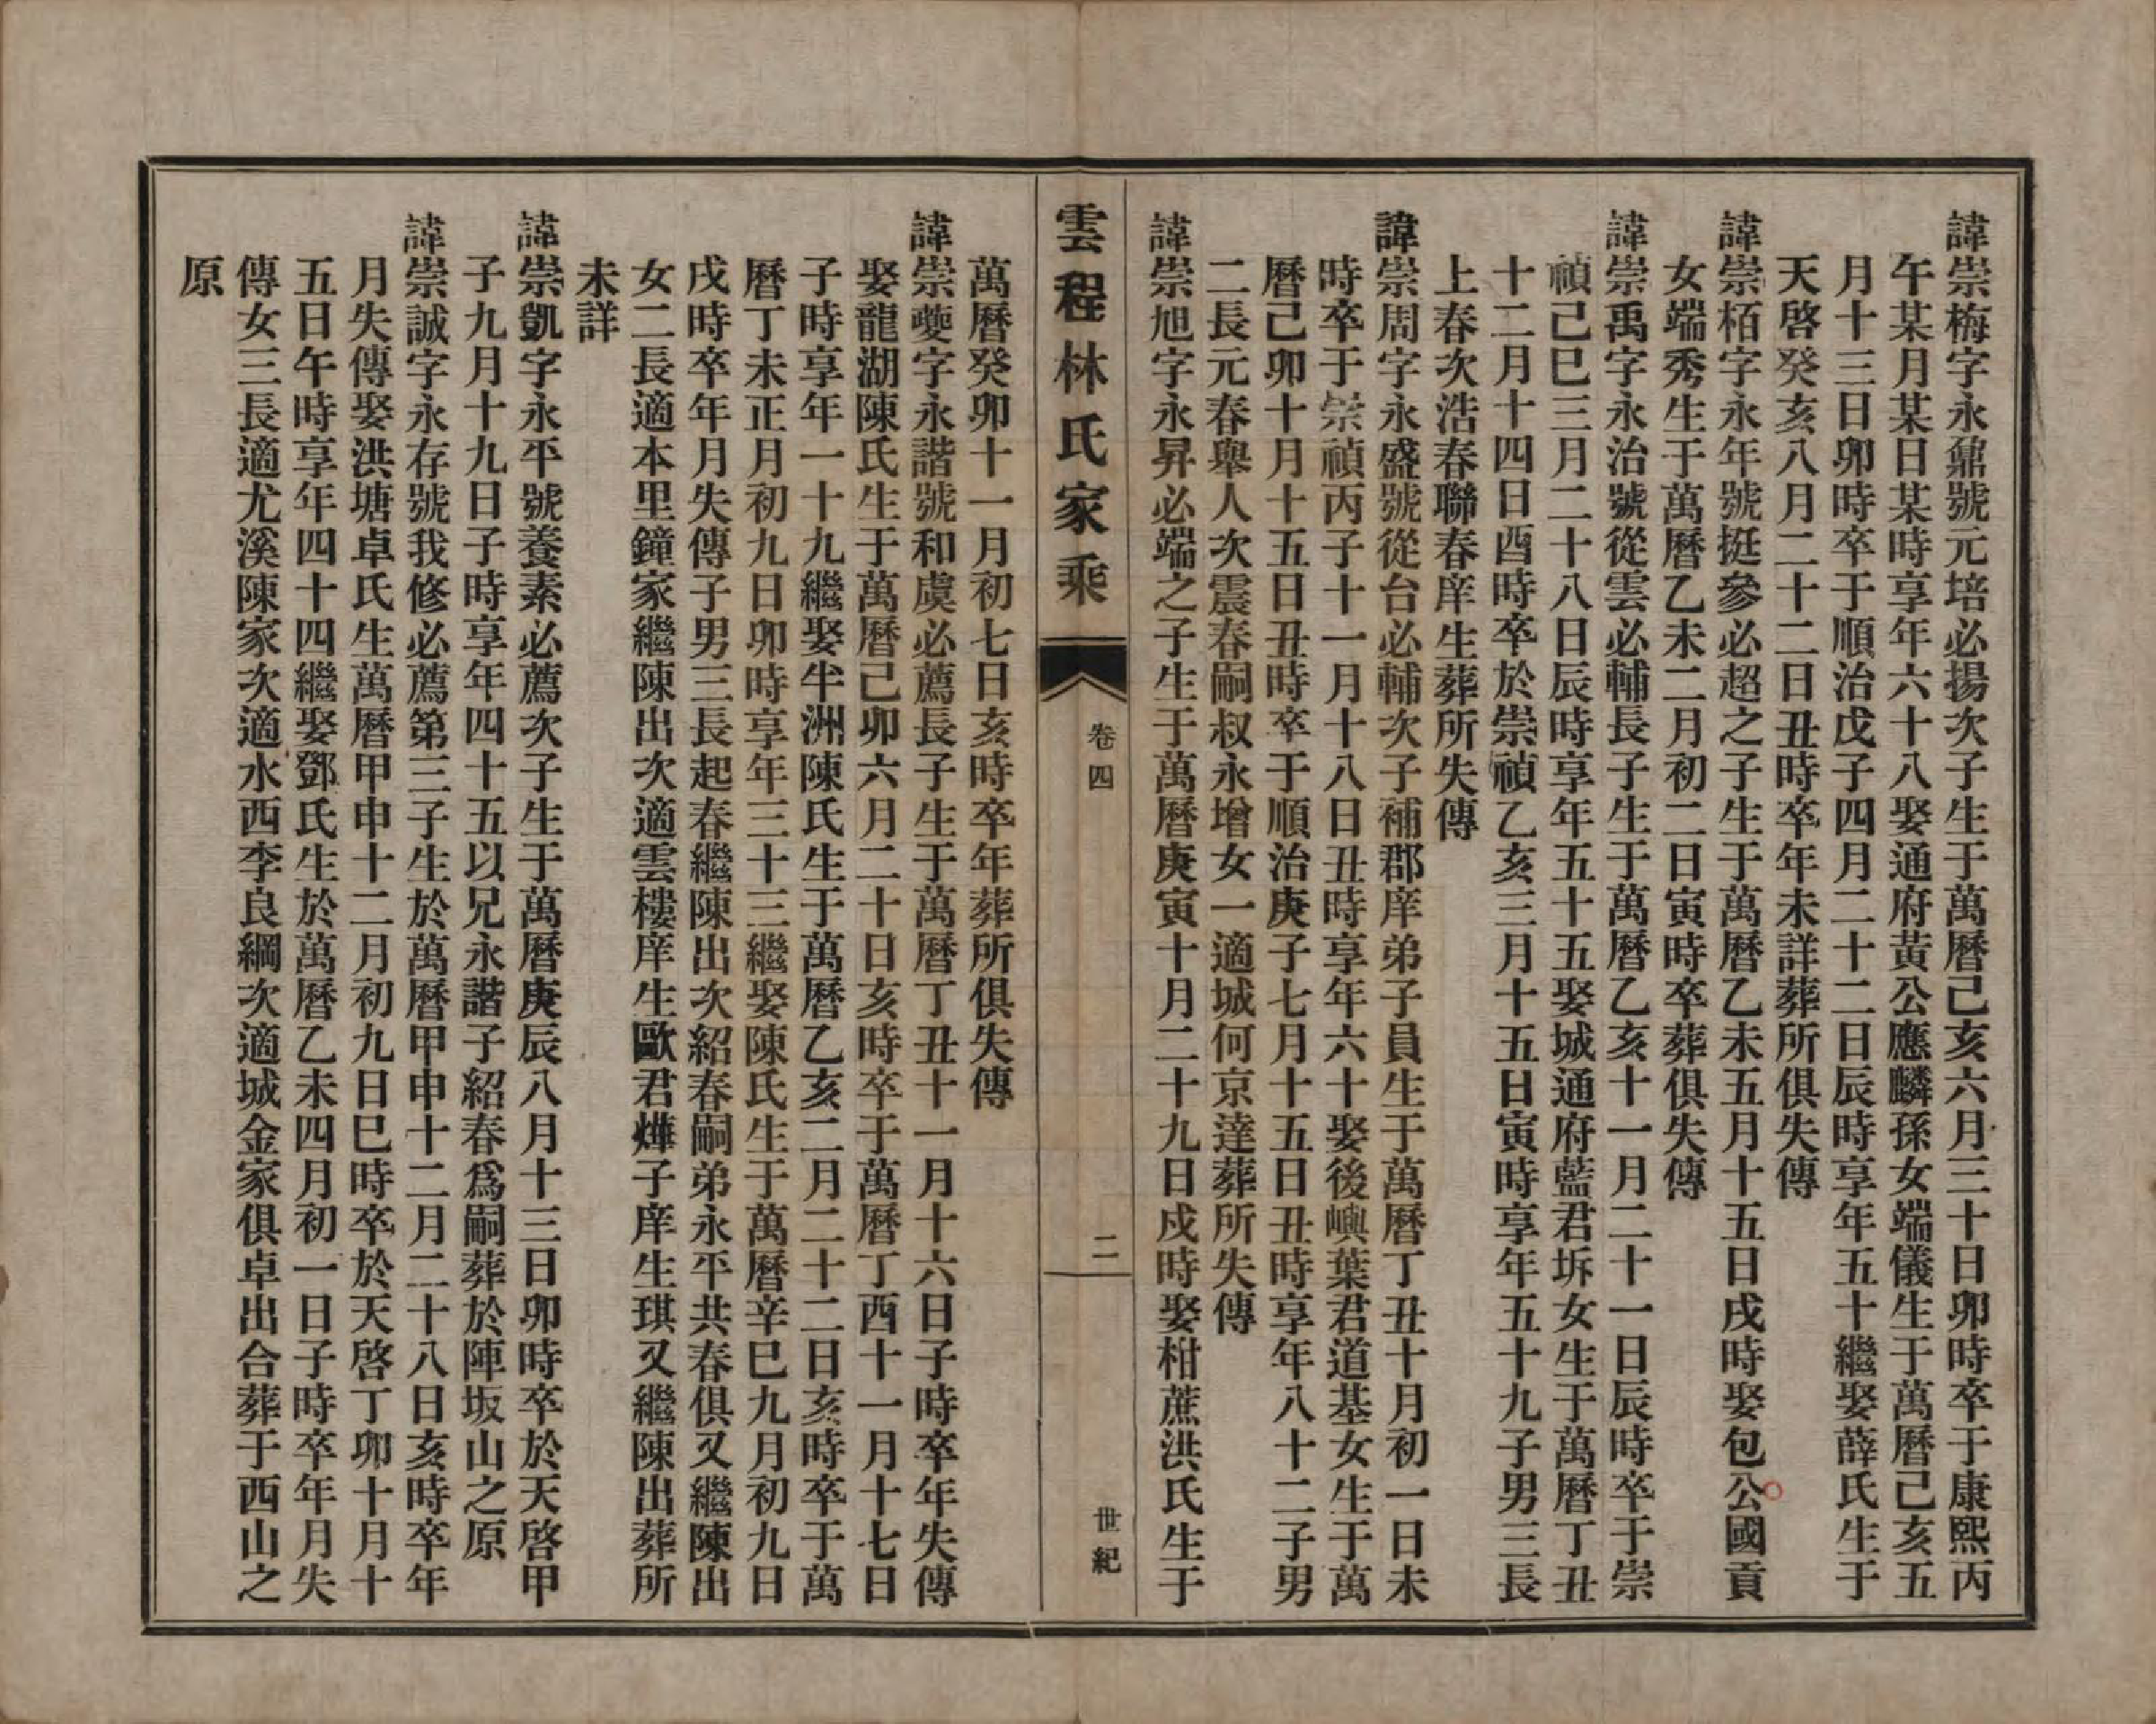 諱崇梅字永鼐號元培必揚次子生于萬曆己亥六月三十日卯時卒于康熙丙
午某月某日某時享年六十八娶通府黃公應麟孫女端儀生于萬曆己亥五
月十三日卯時卒于順治戊子四月二十二日辰時享年五十繼娶薛氏生于
天啓癸亥八月二十二日丑時卒年未詳葬所俱失傳
諱崇栢字永年號挺參必超之子生于萬曆乙未五月十五日戌時娶包公國貢
女端秀生于萬曆乙未二月初二日寅時卒葬俱失傳
諱崇禹字永治號從雲必輔長子生于萬曆乙亥十一月二十一日辰時卒于崇
禎己巳三月二十八日辰時享年五十五娶城通府藍君坼女生于萬曆丁丑
十二月十四日酉時卒於崇禎乙亥三月十五日寅時享年五十九子男三長
上春次浩春聯春庠生葬所失傳
諱崇周字永盛號從台必輔次子補郡庠弟子員生于萬曆丁丑十月初一日未
時卒于崇禎丙子十一月十八日丑時享年六十娶後嶼葉君道基女生于萬
曆己卯十月十五日丑時卒于順治庚子七月十五日丑時享年八十二子男
二長元春舉人次震春嗣叔永增女一適城何京達葬所失傳
諱崇旭字永昇必端之子生于萬曆庚寅十月二十九日戍時娶柑蔗洪氏生于
雲程林氏家乘
卷四
二
世紀
萬曆癸卯十一月初七日亥時卒年葬所俱失傳
諱崇夔字永諧號和虞必薦長子生于萬曆丁丑十一月十六日子時卒年失傳
娶龍湖陳氏生于萬曆己卯六月二十日亥時卒于萬曆丁酉十一月十七日
子時享年一十九繼娶半洲陳氏生于萬曆乙亥二月二十二日亥時卒于萬
曆丁未正月初九日卯時享年三十三繼娶陳氏生于萬曆辛巳九月初九日
戌時卒年月失傳子男三長起春繼陳出次紹春嗣弟永平共春俱又繼陳出
女二長適本里鐘家繼陳出次適雲樓庠生歐君燁子庠生琪又繼陳出葬所
未詳
諱崇凱字永平號養素必薦次子生于萬曆庚辰八月十三日卯時卒於天啓甲
子九月十九日子時享年四十五以兄永諧子紹春爲嗣葬於陣坂山之原
諱崇誠字永存號我修必薦第三子生於萬曆甲申十二月二十八日亥時卒年
月失傳娶洪塘卓氏生萬曆甲申十二月初九日巳時卒於天啓丁卯十月十
五日午時享年四十四繼娶鄧氏生於萬曆乙未四月初一日子時卒年月失
傳女三長適尤溪陳家次適水西李良綱次適城金家俱卓出合葬于西山之
原